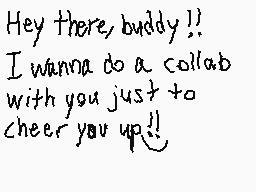 Hey there, buddy!!
I wanna do a collab
with you just to
cheer you up!!